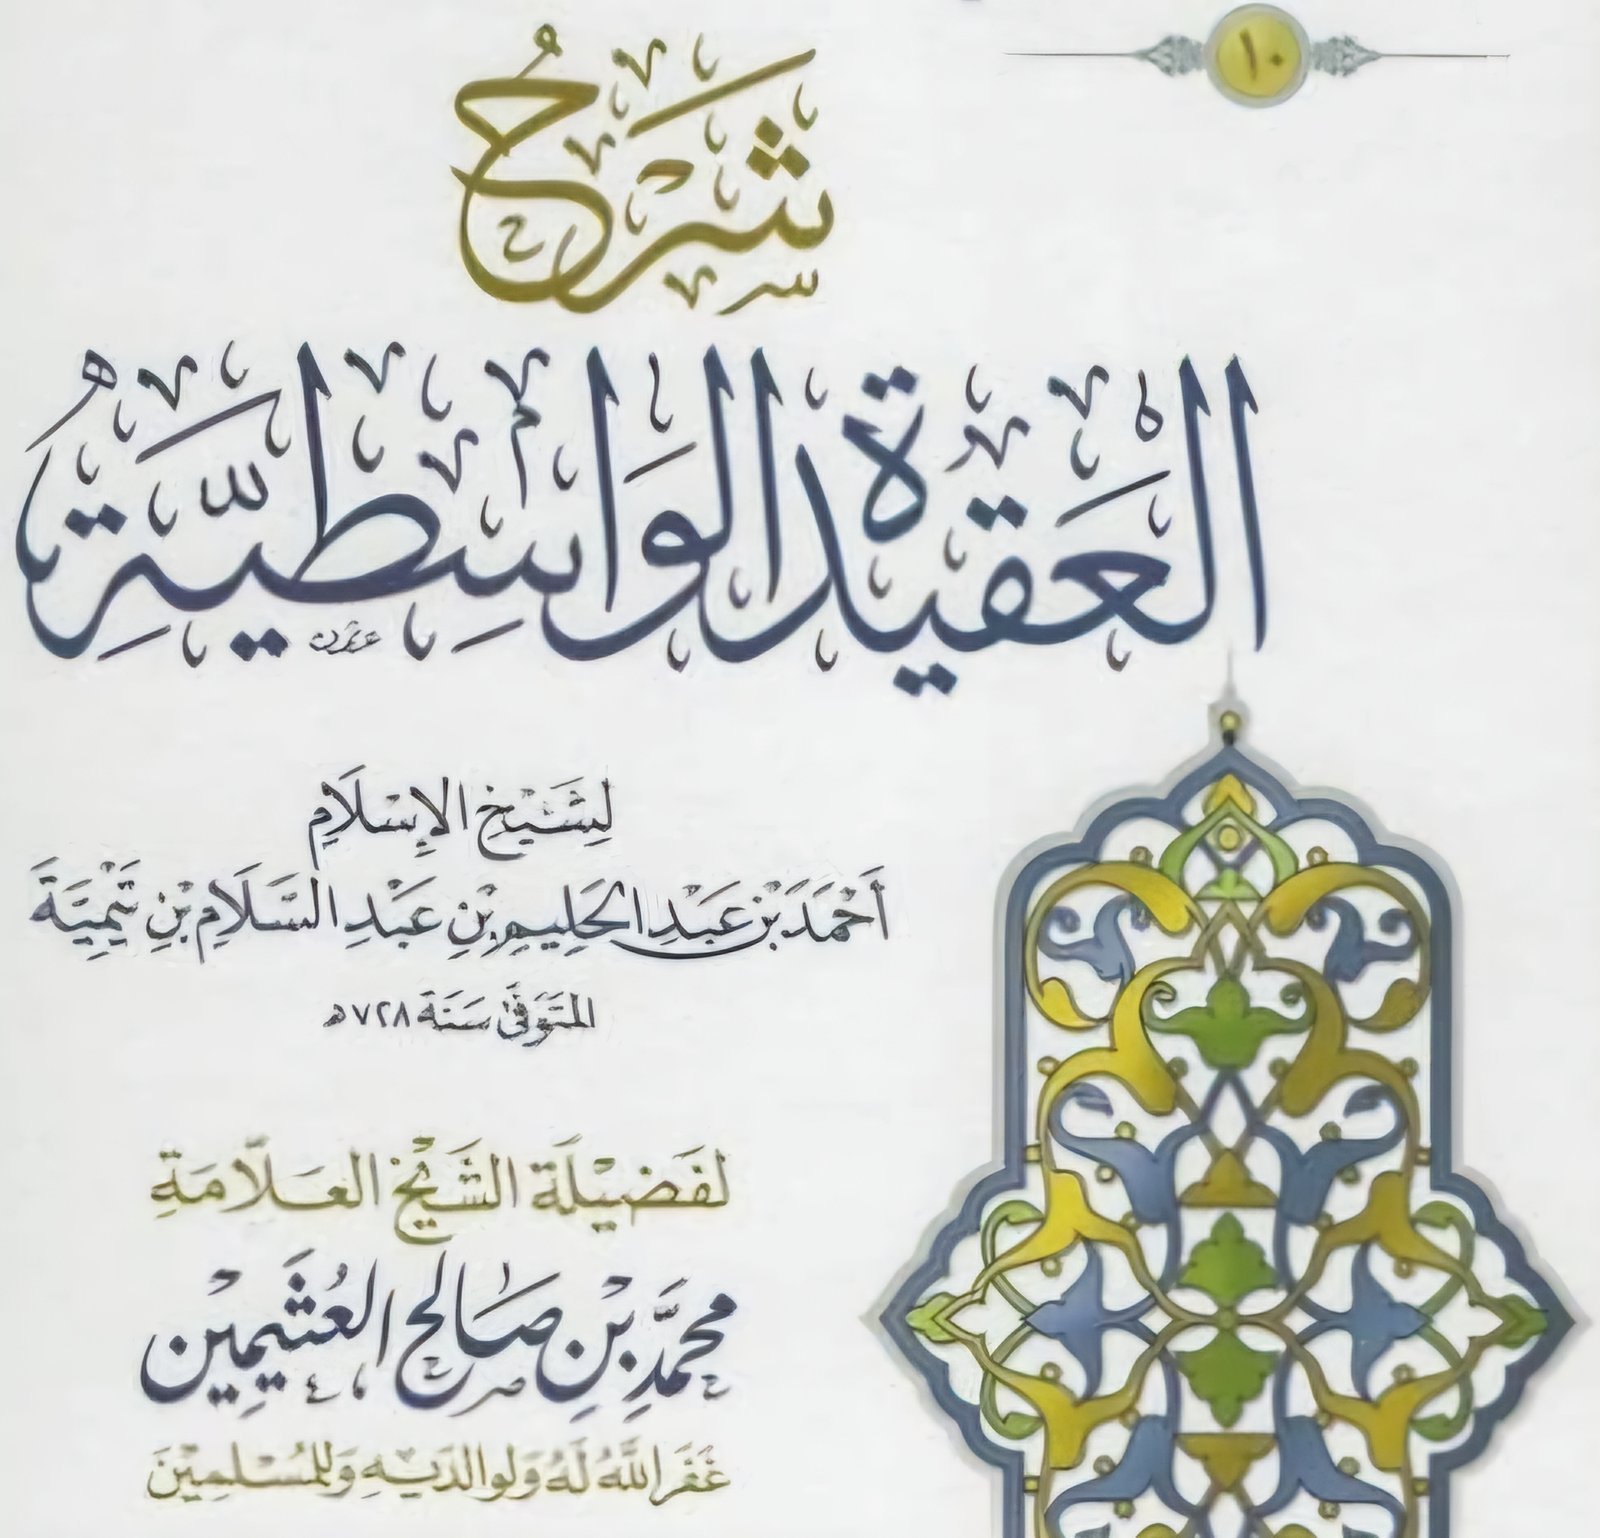 ١٠
شَرْحُ
العَقِيدَةِ الوَاسِطِيَّةِ
لِشَيْخِ الإِسْلَامِ
أَحْمَدَ بْنِ عَبْدِ الحَلِيمِ بْنِ عَبْدِ السَّلَامِ بْنِ تَيْمِيَّةَ
المُتَوَفَّى سَنَةَ ٧٢٨ھ
لفَضِيْلَةِ الشَّيْخِ العَلَّامَةِ
محمَّدِ بْنِ صَالح العُثَيمِين
غَفَرَ اللَّهُ لَهُ وَلِوَالدَيْهِ وَلِلمُسْلِمِيْنَ